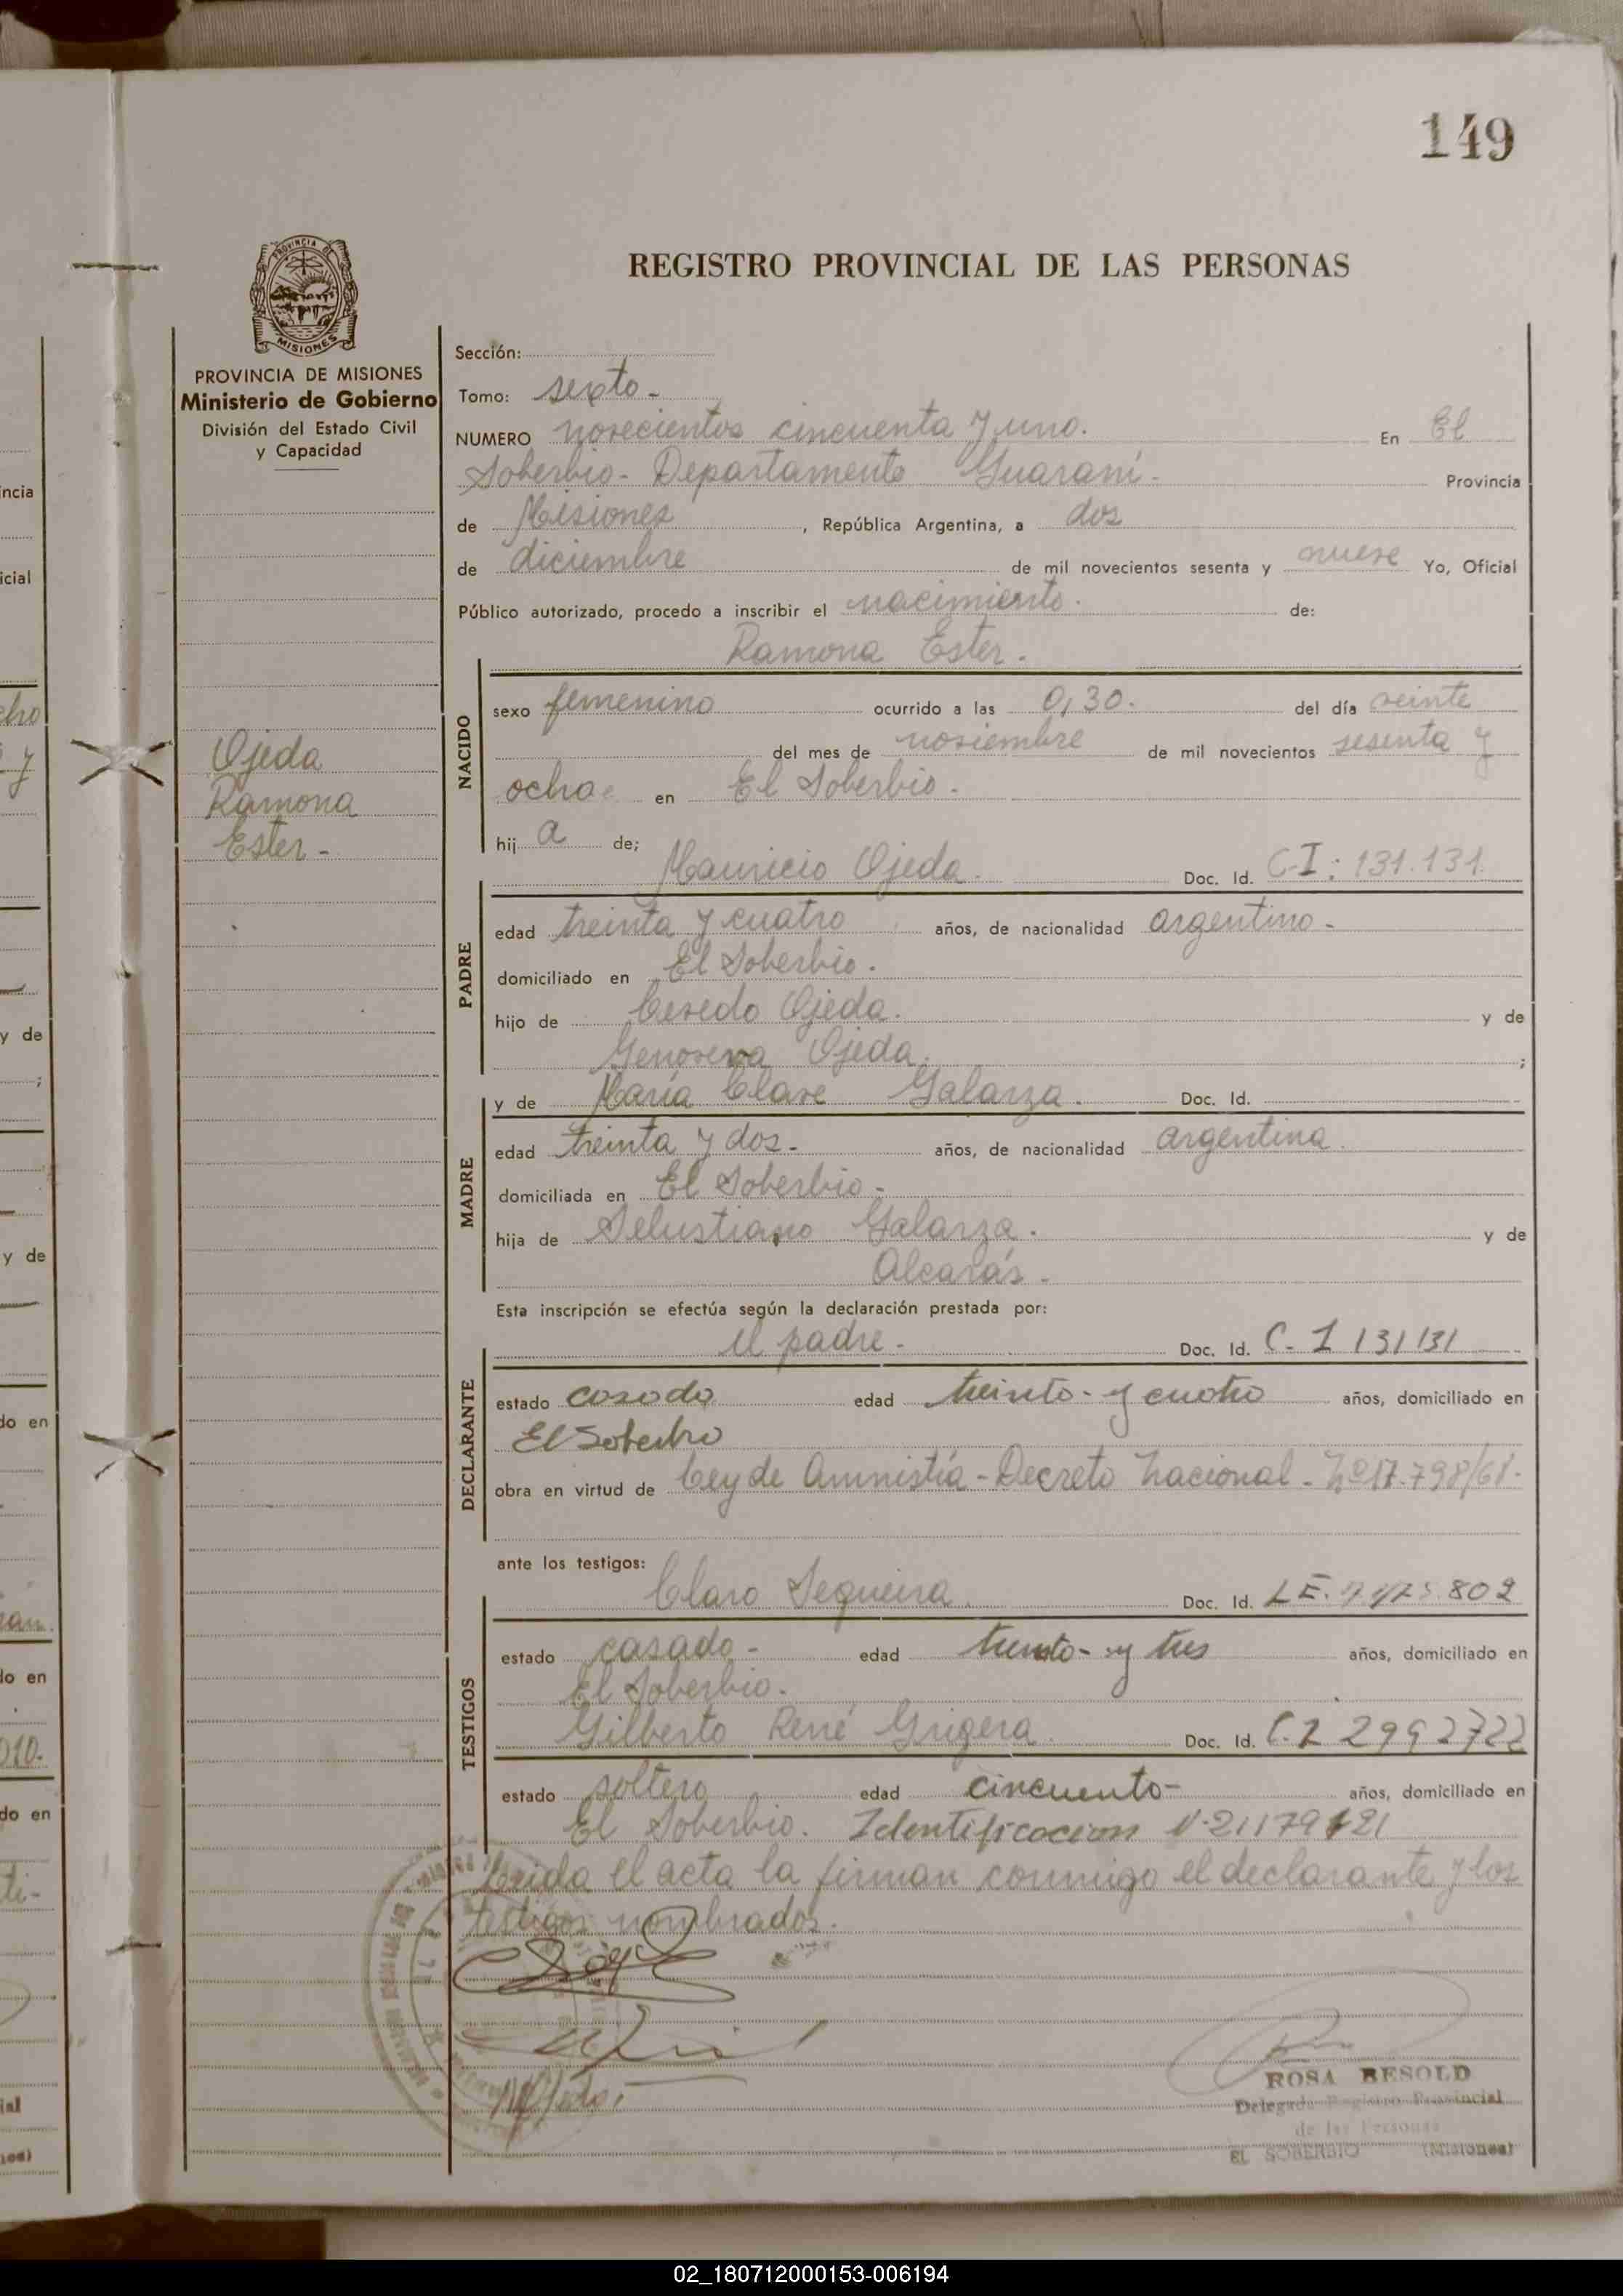 149
REGISTRO PROVINCIAL DE LAS PERSONAS
PROVINCIA DE MISIONES
Ministerio de Gobierno
División del Estado Civil
y Capacidad
Ojeda
Ramona
Ester -
Sección:
Tomo: sexto -
NUMERO novecientos cincuenta y uno. En El
Soberbio - Departamento Guaraní - Provincia
de Misiones, República Argentina, a dos
de diciembre de mil novecientos sesenta y nueve Yo, Oficial
Público autorizado, procedo a inscribir el nacimiento. de:
Ramona Ester.
NACIDO
sexo femenino ocurrido a las 0,30. del día veinte
del mes de noviembre de mil novecientos sesenta y
ocho en El Soberbio.
hij a de;
Mauricio Ojeda. Doc. Id. C-I: 131.131.
PADRE
edad treinta y cuatro años, de nacionalidad argentino -
domiciliado en El Soberbio.
hijo de Ojeda. y de
Genoveva Ojeda. ;
y de María Clave Galarza. Doc. Id.
MADRE
edad treinta y dos - años, de nacionalidad argentina.
domiciliada en El Soberbio -
hija de Selustiano Galarza. y de
Alcarás -
Esta inscripción se efectúa según la declaración prestada por:
el padre - Doc. Id. C- I 131131
DECLARANTE
estado casado edad treinta - y cuatro años, domiciliado en
El Soberbio
obra en virtud de Ley de Amnistía - Decreto Nacional - Nº 17.798/68.
ante los testigos:
Claro Sequeira. Doc. Id. LE. 802
TESTIGOS
estado casado - edad treinta - y tres años, domiciliado en
El Soberbio.
Gilberto René Grigera Doc. Id. C.I 2992722
estado soltero edad cincuenta - años, domiciliado en
El Soberbio. Identificacion
Leida el acta la firman conmigo el declarante y los
testigos nombrados.
ROSA BESOLD
Delegada Registro Provincial
de las Personas
EL SOBERBIO (Misiones)
02_180712000153-006194